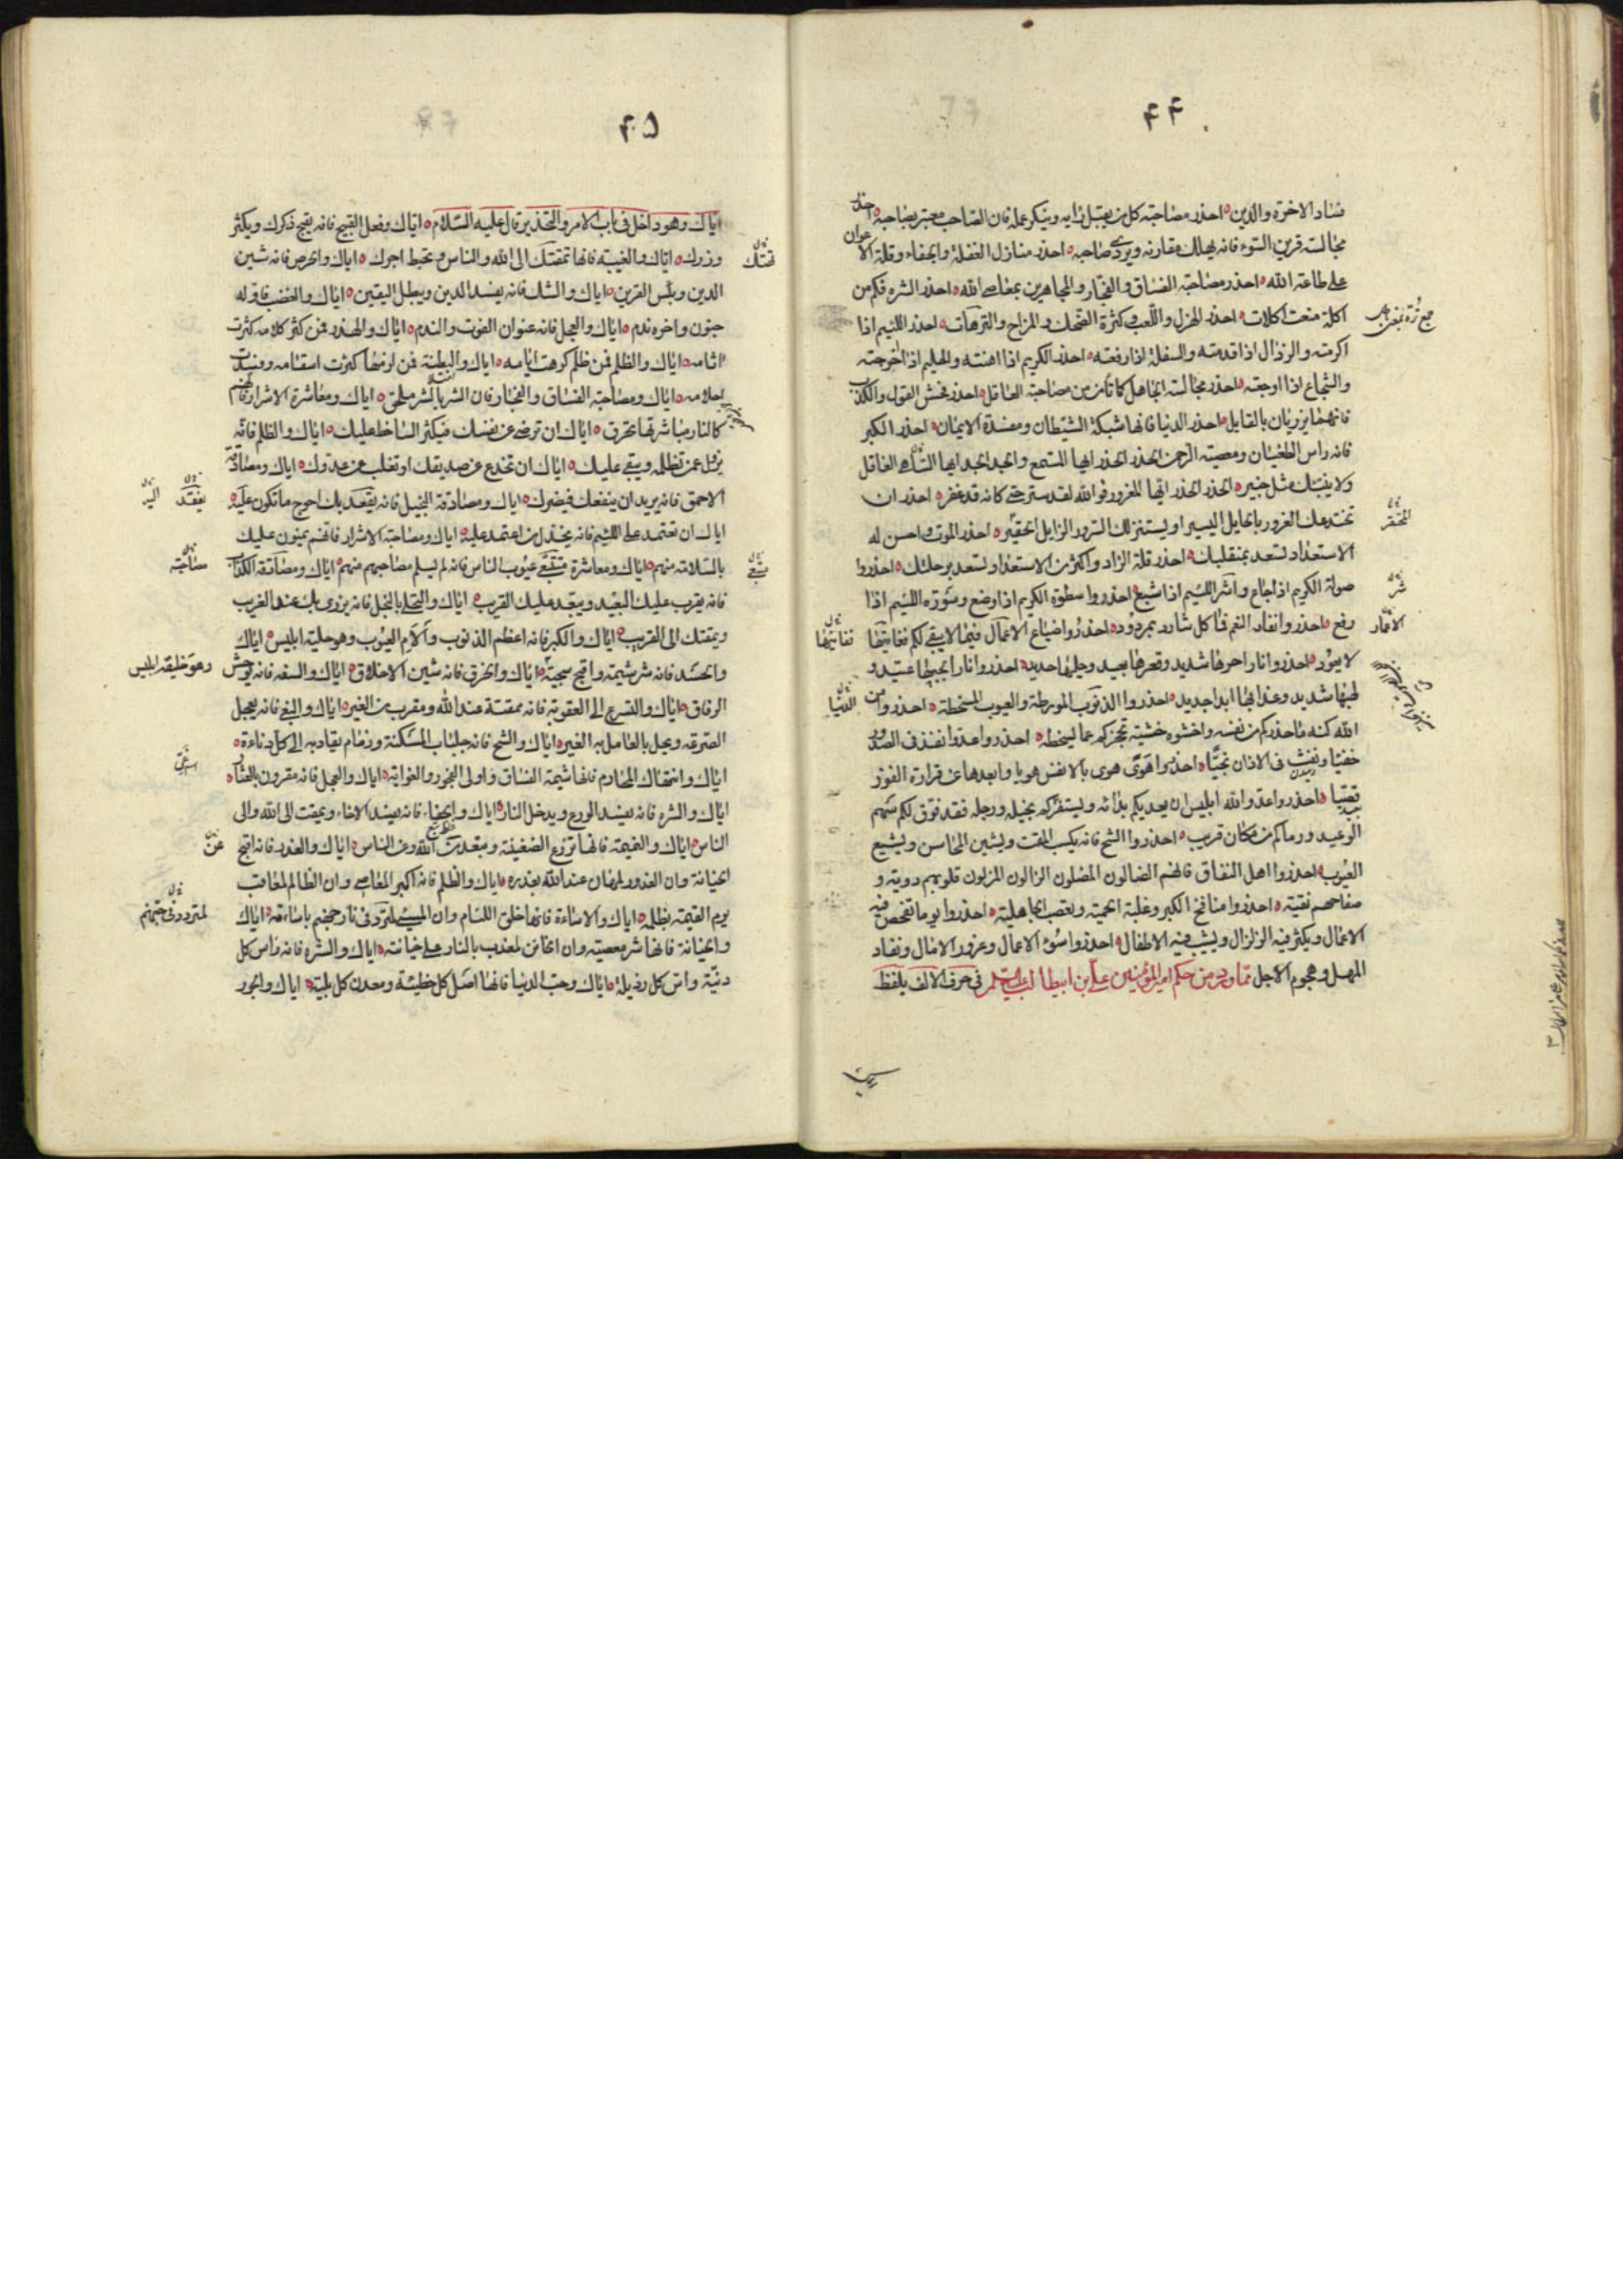 ۴۴
فساد الاخرة والدين احذر مصاحبة كل من يقبل رايه وينكر عمله فان الصاحب معتبر بصاحبه احذر
مجالسة قرين السوء فانه يهلك مقارنه ويردي صاحبه احذر منازل الغفلة والجفاء وقلة الاعوان
على طاعة الله احذر مصاحبة الفساق والفجار والمجاهرين بمعاصي الله احذر الشره فكم من
اكلة منعت اكلات احذر الهزل واللعب وكثرة الضحك والمزاح والترهات احذر اللئيم اذا
اكرمته والرذال اذا قدمته والسفلة اذا رفعته احذر الكريم اذا اهنته والحليم اذا احرجته
والشجاع اذا اوجعته احذر مجالسة الجاهل كما تأمن من مصاحبة العاقل احذر فحش القول والكذب
فانهما يزريان بالقايل احذر الدنيا فانها شبكة الشيطان ومفسدة الايمان احذر الكبر
فانه راس الطغيان ومعصية الرحمن الحذر الحذر ايها المستمع والجد الجد ايها الغافل
ولا ينبئك مثل خبير الحذر الحذر ايها المغرور فوالله لقد ستر حتى كانه قد غفر احذر ان
تخدعك الغرور بالحايل اليسير او يستنزلك السرور الزايل الحقير احذر الموت واحسن له
الاستعداد تسعد بمنقلبك احذر قلة الزاد واكثر من الاستعداد تسعد برحلتك احذروا
صولة الكريم اذا جاع واشر اللئيم اذا شبع احذروا سطوة الكريم اذا وضع وسورة اللئيم اذا
رفع احذروا نفار النعم فما كل شارد بمردود احذروا ضياع الاعمار فيما لا يبقى لكم ففايتها
لا يعود احذروا نارا حرها شديد وقعرها بعيد وحليها حديد احذروا نارا لجبها عتيد و
لهبها شديد وعذابها ابدا جديد احذروا الذنوب المورطة والعيوب المسخطة احذروا من
الله كنه ما حذركم من نفسه واخشوه خشية تحجزكم عما يسخطه احذروا عدوا نفذ في الصدور
خفيا ونفث في الاذان نجيا احذروا هوى هوى بالانفس هويا وابعدها عن قرارة الفوز
قصيا احذروا عدو الله ابليس ان يعديكم بدائه ويستفزكم بخيله ورجله فقد فوق لكم سهم
الوعيد ورماكم من مكان قريب احذروا الشح فانه يكسب المقت ويشين المحاسن ويشيع
العيوب احذروا اهل النفاق فانهم الضالون المضلون الزالون المزلون قلوبهم دوية و
صفاحهم نقية احذروا منافخ الكبر وغلبة الحمية وتعصب الجاهلية احذروا يوما تفحص فيه
الاعمال ويكثر فيه الزلزال ويشيب فيه الاطفال احذروا سوء الاعمال وغرور الامال ونفاد
المهل وهجوم الاجل مما ورد من حكم امير المؤمنين علي بن ابيطالب عليه السلم في حرف الالف بلفظ
المحقر
شر
الاعمار
ففايتها
الدنيا
اياك
۴۵
اياك وهو داخل في باب الامر والتحذير قال عليه السلام اياك وفعل القبيح فانه يقبح ذكرك ويكثر
وزرك اياك والغيبة فانها تمقتك الى الله والناس وتحبط اجرك اياك والحرص فانه شين
الدين وبئس القرين اياك والشك فانه يفسد الدين ويبطل اليقين اياك والغضب فاوله
جنون واخره ندم اياك والعجل فانه عنوان الفوت والندم اياك والهذر فمن كثر كلامه كثرت
اثامه اياك والظلم فمن ظلم كرهت ايامه اياك والبطنة فمن لزمها كثرت اسقامه وفسدت
احلامه اياك ومصاحبة الفساق والفجار فان الشر بالشر ملحق اياك ومعاشرة الاشرار فانهم
كالنار مباشرتها تحرق اياك ان ترضى عن نفسك فيكثر الساخط عليك اياك والظلم فانه
يزول عمن تظلمه ويبقى عليك اياك ان تخدع عن صديقك او تغلب عن عدوك اياك ومصادقة
الاحمق فانه يريد ان ينفعك فيضرك اياك ومصادقة البخيل فانه يقعد بك احوج ما تكون عليه
اياك ان تعتمد على اللئيم فانه يخذل من اعتمد عليه اياك ومصاحبة الاشرار فانهم يمنون عليك
بالسلامة منهم اياك ومعاشرة متتبعي عيوب الناس فانه لم يسلم مصاحبهم منهم اياك ومصادقة الكذاب
فانه يقرب عليك البعيد ويبعد عليك القريب اياك والتحلي بالبخل فانه يزري بك عند الغريب
ويمقتك الى القريب اياك والكبر فانه اعظم الذنوب والأم العيوب وهو حلية ابليس اياك
والحسد فانه شر شيمة واقبح سجية اياك والخرق فانه شين الاخلاق اياك والسفه فانه يوحش
الرفاق اياك والتسرع الى العقوبة فانه ممقتة عند الله ومقرب من الغير اياك والبغي فانه يعجل
الصرعة ويحل بالعامل به الغير اياك والشح فانه جلباب المسكنة وزمام يقاد به الى كل دناءة
اياك وانتهاك المحارم فانها شيمة الفساق واولى الفجور والغواية اياك والعجل فانه مقرون بالعثار
اياك والشره فانه يفسد الورع ويدخل النار اياك والجفاء فانه يفسد الاخاء ويمقت الى الله والى
الناس اياك والنميمة فانها تزرع الضغينة وتبعد من الله وعن الناس اياك والغدر فانه اقبح
الخيانة وان الغدور لمهان عند الله بغدره اياك والظلم فانه اكبر المعاصي وان الظالم لمعاقب
يوم القيمة بظلمه اياك والاساءة فانها خلق اللئام وان المسيء لمترد في نار جهنم باساءته اياك
والخيانة فانها شر معصية وان الخائن لمعذب بالنار على خيانته اياك والشره فانه راس كل
دنية واس كل رذيلة اياك وحب الدنيا فانها اصل كل خطيئة ومعدن كل بلية اياك والجور
يفقد
اليه
مصاحبة
وهو خليقة ابليس
عن